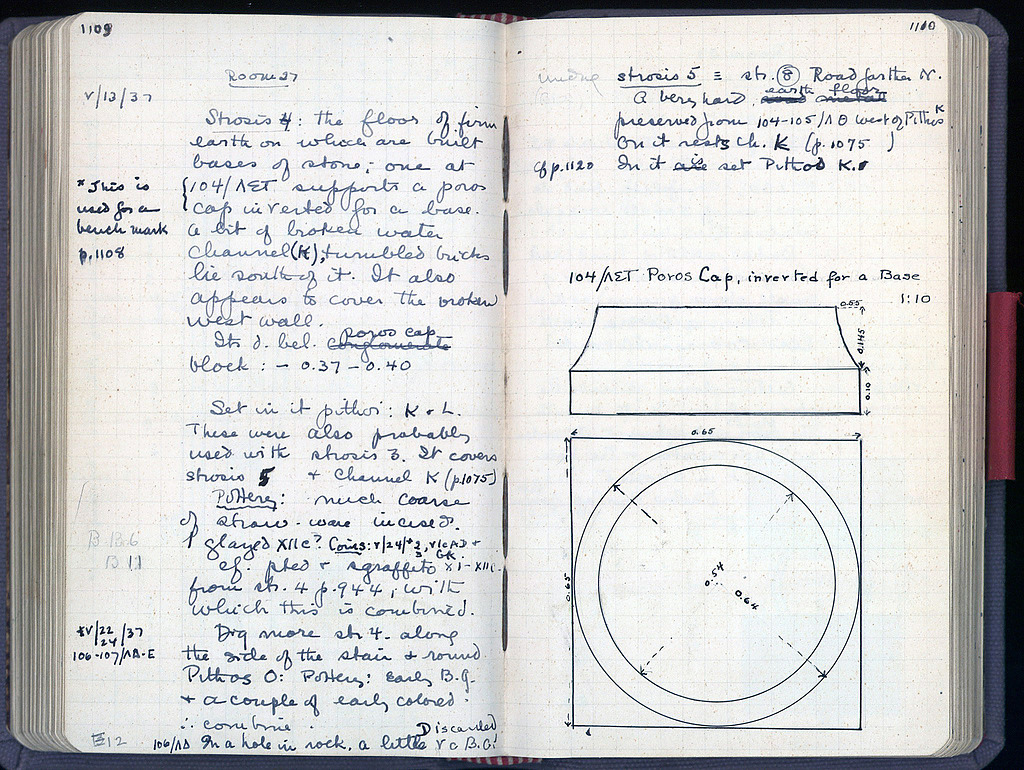 1109
Room 27
V/13/37
Strosis 4: the floor of firm
earth on which are built
bases of stone; one at
104/ΛΣΤ supports a poros
cap inverted for a base.
* This is
used for a
bench mark
p.1108
A bit of broken water
channel (K); tumbled bricks
lie south of it. It also
appears to cover the broken
west wall.
Its d. bel. conglomerate poros cap
block: - 0.37 - 0.40
Set in it pithoi: K + L.
These were also probably
used with strosis 3. It covers
strosis 5 + Channel K (p.1075)
Pottery: much coarse
of straw-ware incised.
1 glazed XII c? Coins: V/24/
cf. pted + sgraffito XI - XII c.
from str. 4 p.944, with
which this is combined.
B 11
*V/22
24/37
106-107/ΛΔ-E
Dig more str. 4. along
the side of the stair + round
Pithos O: Pottery: Early B.G.
+ a couple of early colored.
∴ combine. Discarded
E12
106/ΛΔ In a hole in rock, a little V c B.G.
1110
strosis 5 ≡ str. 8 Road farther N.
A very hard, road metall earth floor
preserved from 104-105/ΛΘ west of Pithos K
On it rests Ch. K (p.1075)
cf p.1120 In it is set Pithos K.
104/ΛΣΤ Poros Cap, inverted for a Base
1:10
0.55
0.145
0.10
0.65
0.65
0.54
0.64